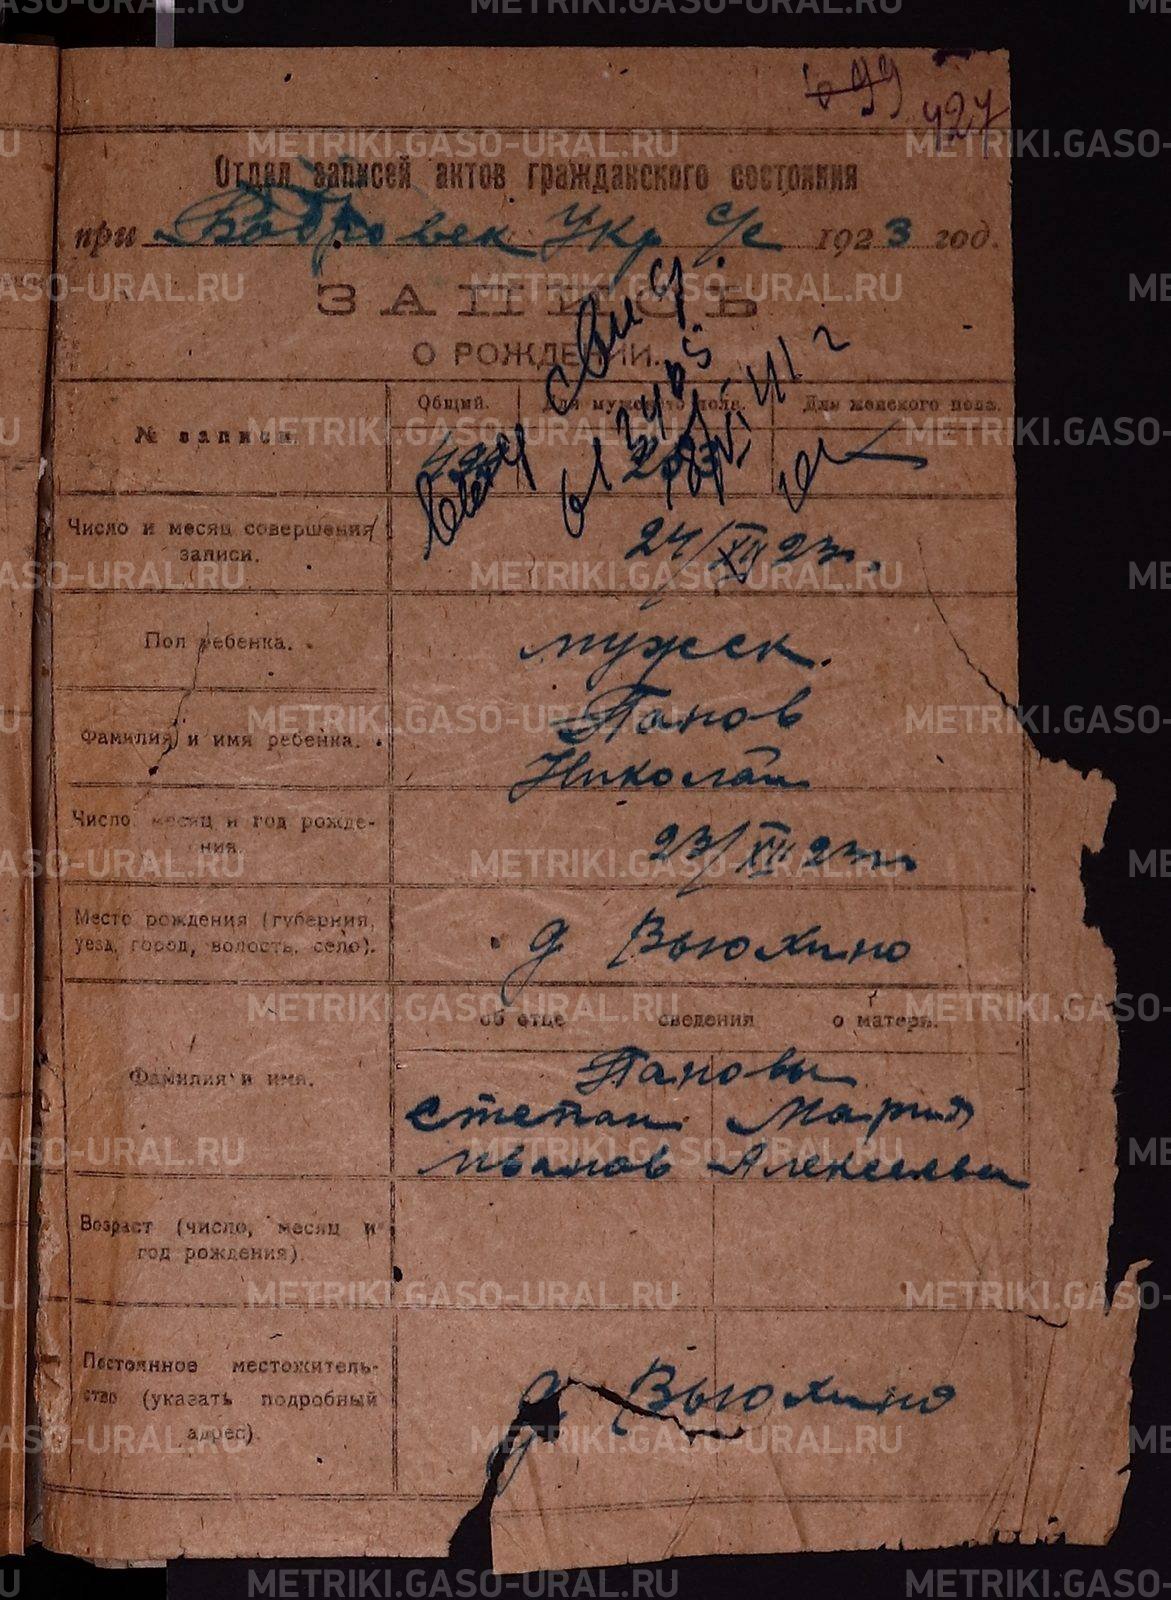 699
427
Отдел записей актов гражданского состояния
при Бобровск Укр с/с 1923 год.
ЗАПИСЬ
О РОЖДЕНИИ.
№ записи.
Общий. Для мужского пола. Для женского пола.
Число и месяц совершения записи.
24/XII 23г.
Пол ребенка.
мужск.
Фамилия и имя ребенка.
Панов
Николай
Число, месяц и год рожде-
ния.
23/XII 23г
Место рождения (губерния,
уезд, город, волость, село).
д Вьюхино
об отце сведения о матери.
Фамилия и имя.
Пановы
Степан Мария
Иванов Алексеевна
Возраст (число, месяц и
год рождения).
Постоянное местожитель-
ство (указать подробный
адрес).
д. Вьюхино
METRIKI.GASO-URAL.RU